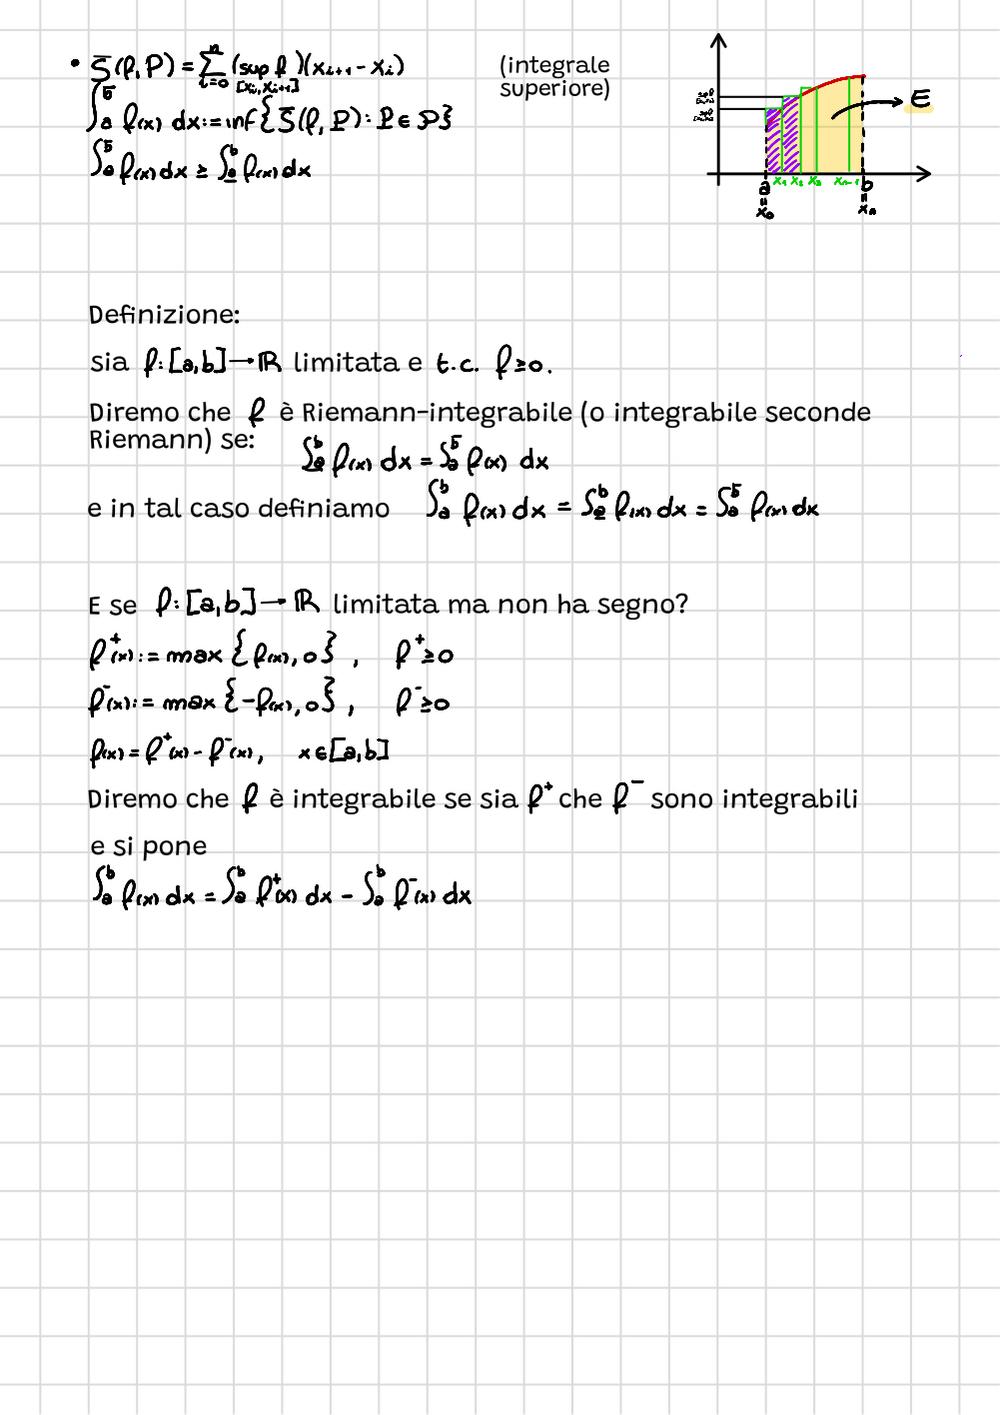 • S̅(f, P) = ∑_{i=0}^{n} (sup_{[xᵢ, xᵢ₊₁]} f)(xᵢ₊₁ - xᵢ) (integrale superiore)
∫_a^b̅ f(x) dx := inf{S̅(f, P) : P ∈ 𝒫}
∫_a^b̅ f(x) dx ≥ ∫_a̲^b f(x) dx
E
x₁ x₂ x₃ xₙ₋₁
a = x₀
b = xₙ
Definizione:
sia f: [a,b] → ℝ limitata e t.c. f ≥ 0.
Diremo che f è Riemann-integrabile (o integrabile seconde
Riemann) se: ∫_a̲^b f(x) dx = ∫_a^b̅ f(x) dx
e in tal caso definiamo ∫_a^b f(x) dx = ∫_a̲^b f(x) dx = ∫_a^b̅ f(x) dx
E se f: [a,b] → ℝ limitata ma non ha segno?
f⁺(x) := max {f(x), 0} , f⁺ ≥ 0
f⁻(x) := max {-f(x), 0} , f⁻ ≥ 0
f(x) = f⁺(x) - f⁻(x), x ∈ [a,b]
Diremo che f è integrabile se sia f⁺ che f⁻ sono integrabili
e si pone
∫_a^b f(x) dx = ∫_a^b f⁺(x) dx - ∫_a^b f⁻(x) dx